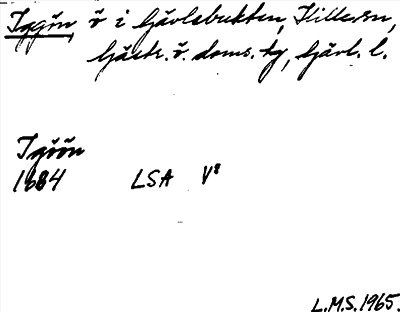 Iggön, ö i Gävlebukten, Hille sn,
Gästr. ö. doms. tg, Gävl. l.
Igöön
1684 LSA V⁸
L.M.S. 1965.